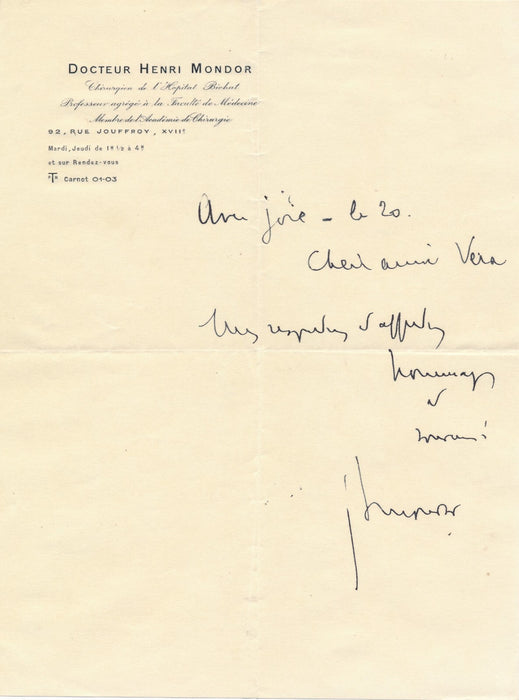 DOCTEUR HENRI MONDOR
Chirurgien de l'Hôpital Bichat
Professeur agrégé à la Faculté de Médecine
Membre de l'Académie de Chirurgie
92, RUE JOUFFROY, XVIIe
Mardi, Jeudi de 1h 1/2 à 4h
et sur Rendez-vous
T Carnot 01-03
Avec joie - le 20.
Cher ami Vera
Mes respectueux d'affectueux
hommages
et